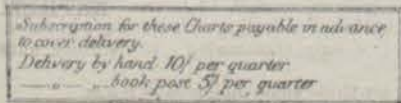 Subscription for these Charts payable in advance
to cover delivery.
Delivery by hand 10/ per quarter
—„— „ book post 5/ per quarter